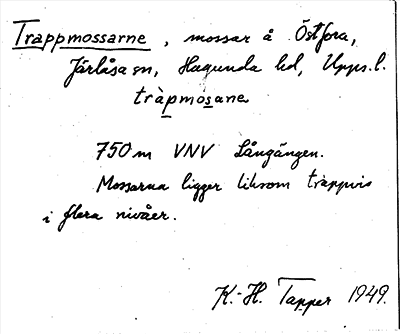 Trappmossarne, mossar å Östfora,
Järlåsa sn, Hagunda hd, Upps.l.
tràpmosane
750 m VNV Långängen.
Mossarna ligger liksom trappvis
i flera nivåer.
K.-H. Tapper 1949.